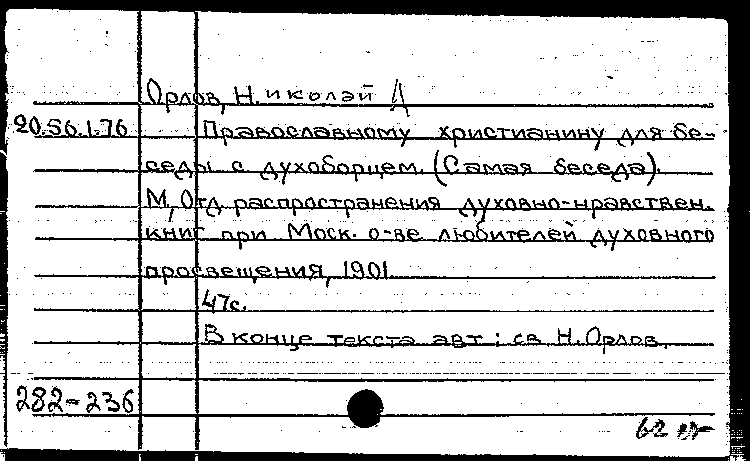 Орлов, Николай Д
20.56.1.76 Православному христианину для бе-
седы с духоборцем. (Самая беседа).
М, Отд распространения духовно-нравствен.
книг при Моск. о-ве любителей духовного
просвещения, 1901
47с.
В конце текста авт: св Н. Орлов.
282-236
62